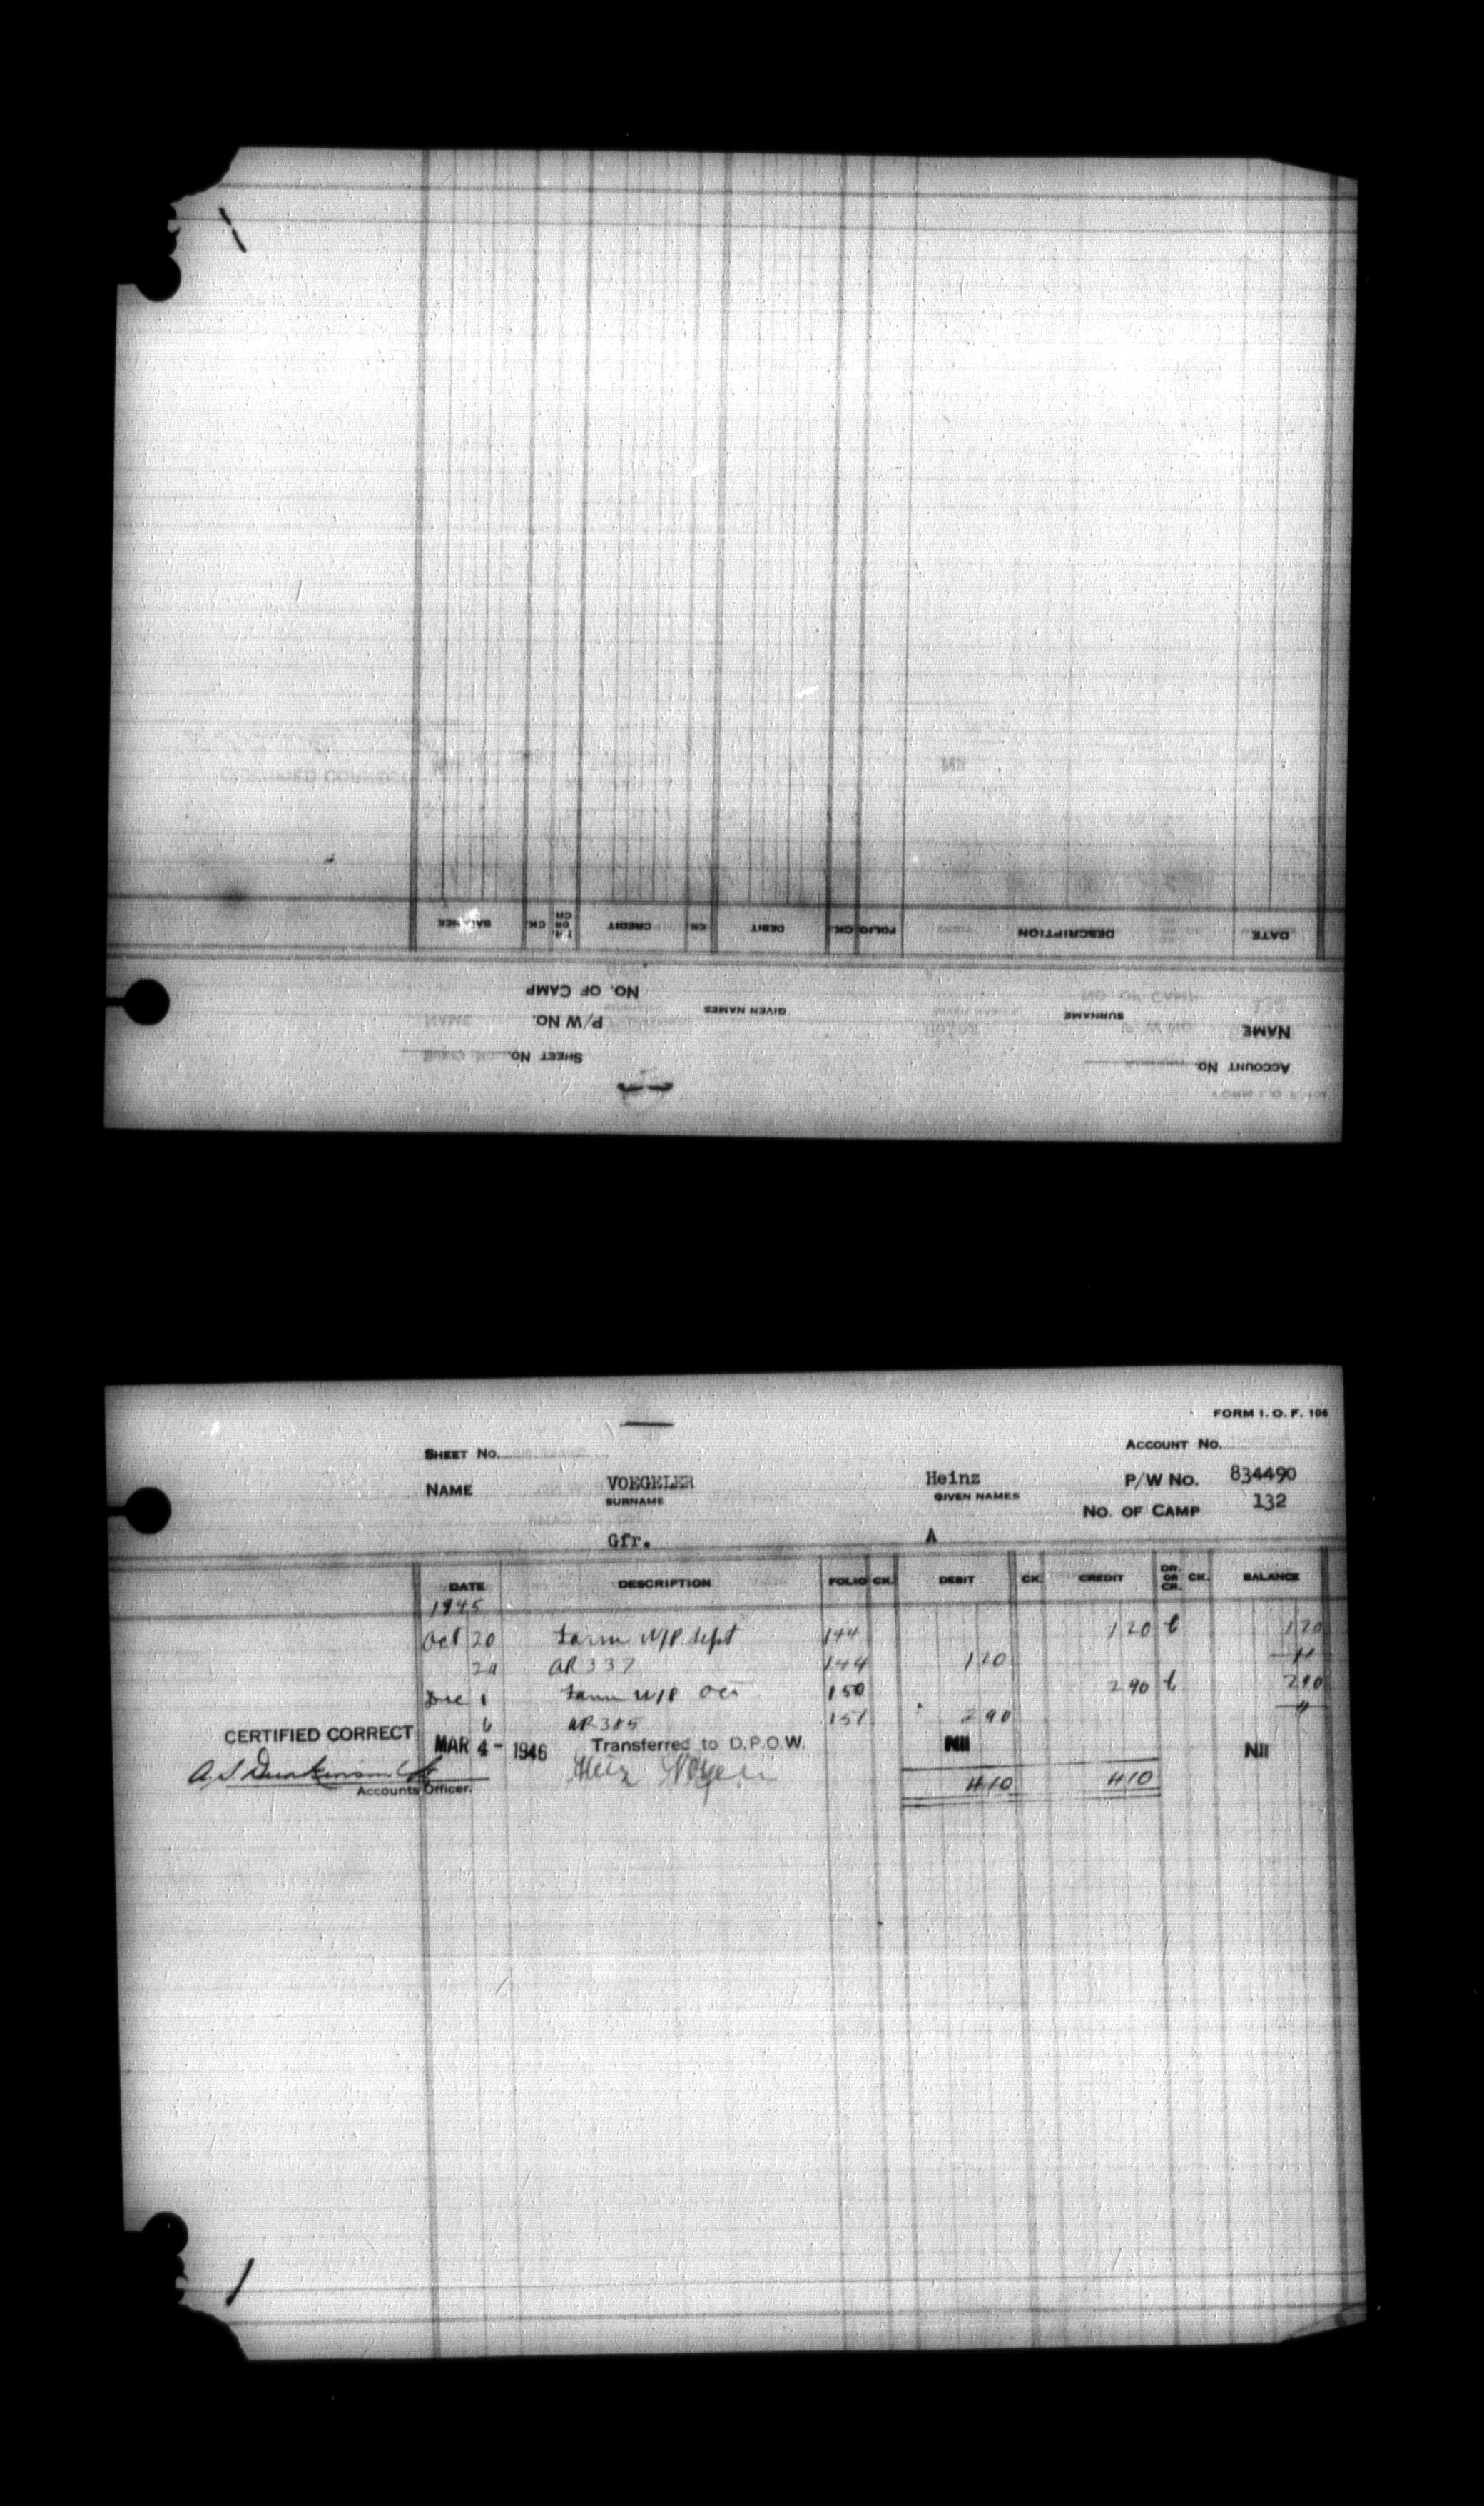 DATE DESCRIPTION FOLIO CK. DEBIT CK. CREDIT DR. OR CR. CK. BALANCE
NAME SURNAME GIVEN NAMES P/W NO. NO. OF CAMP
ACCOUNT NO. SHEET NO.
FORM I. O. F. 106
SHEET NO. ACCOUNT NO.
NAME VOEGELER Heinz P/W NO. 834490
SURNAME GIVEN NAMES NO. OF CAMP 132
Gfr. A
DATE DESCRIPTION FOLIO CK. DEBIT CK. CREDIT DR. OR CR. CK. BALANCE
1945
Oct 20 Farm W/P Sept 144 120 120
20 AR 337 144 120 "
Dec 1 Farm W/P Oct 150 290 290
6 AR 385 151 290 "
CERTIFIED CORRECT MAR 4 - 1946 Transferred to D.P.O.W. Nil Nil
Heinz 410 410
Accounts Officer.